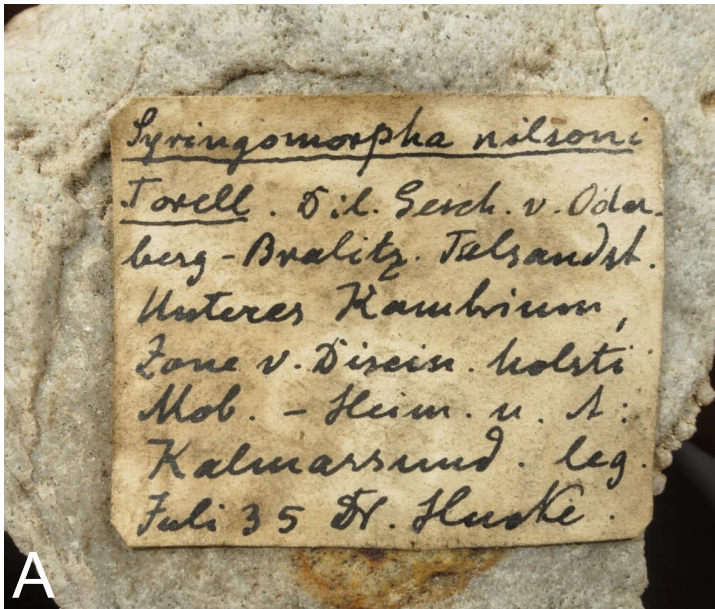 Syringomorpha nilsoni
Torell. Dil. Gesch. v. Oder-
berg-Bralitz. Talsandst.
Unteres Kambrium,
Zone v. Discin. holsti
Mob. - Heim. u. A:
Kalmarsund. leg.
Juli 35 Dr. Hucke.
A